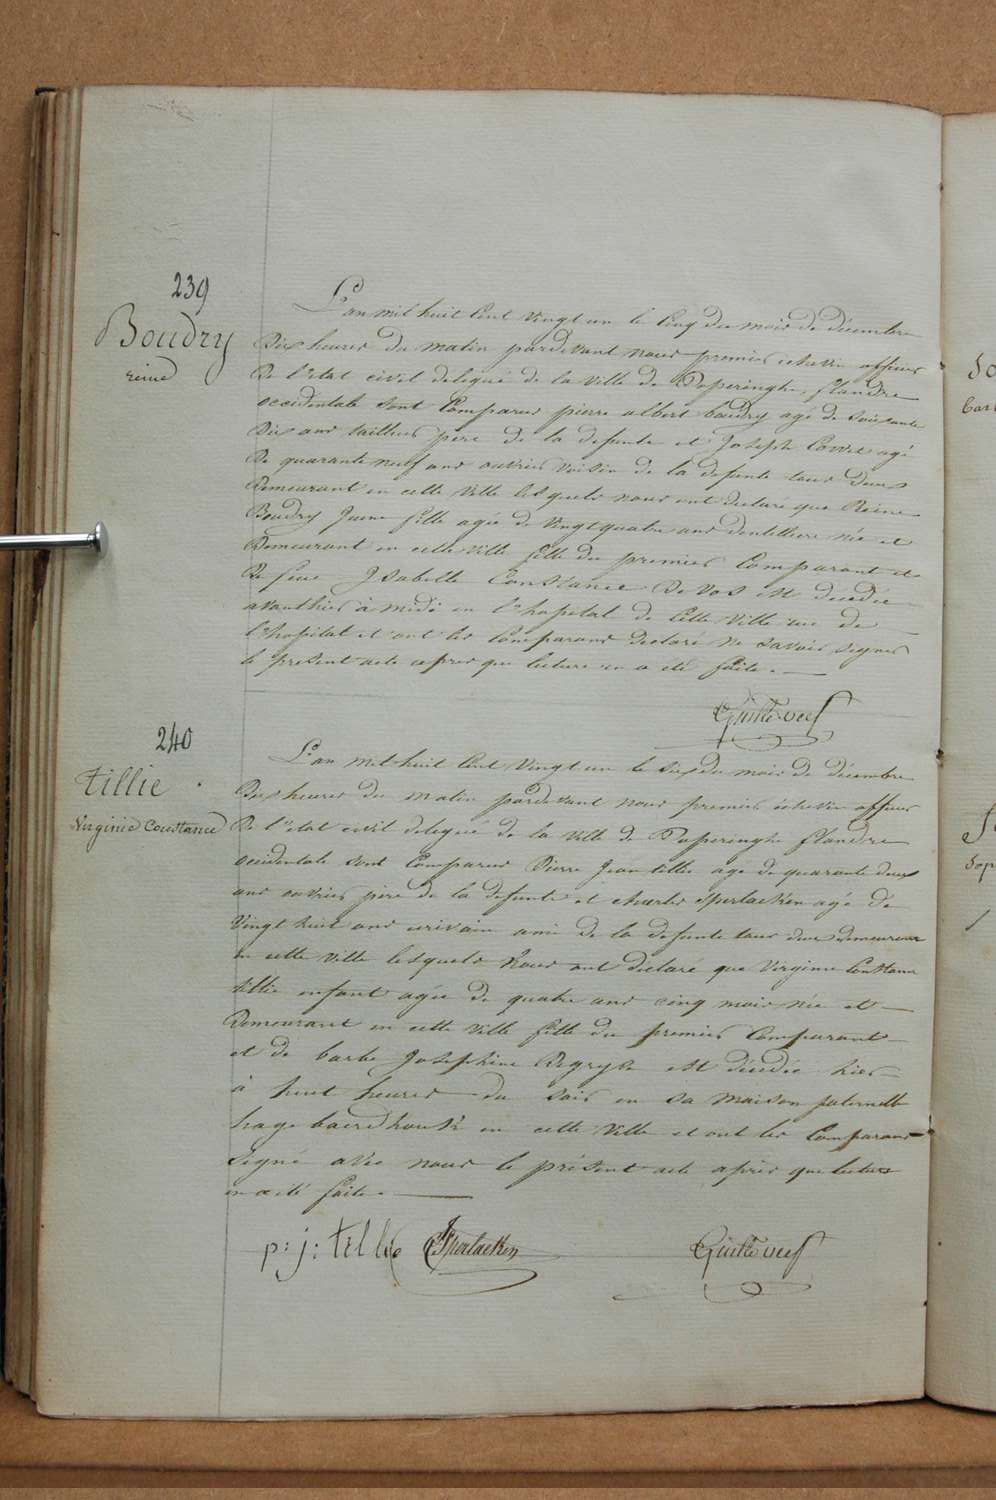 239
Boudry
reine
L'an mil huit Cent vingt un le Cinq du mois de décembre
dix heures du matin pardevant nous premier echevin officier
de l'état civil delegué de la ville de Poperinghe, flandre
occidentale sont Comparus pierre albert boudry agé de soixante
dix ans tailleur père de la defunte et Joseph agé
de quarante neuf ans ouvrier voisin de la defunte tous deux
demeurant en cette ville lesquels nous ont declaré que Reine
Boudry Jeune fille agée de vingt quatre ans dentelliere née et
Demeurant en cette ville fille du premier Comparant et
de feue Isabelle Constance De Vos est decedée
avanthier à midi en l'hopital de Cette ville rue de
l'hopital et ont les Comparans declaré ne savoir signer
le present acte après que lecture en a été faite.
240
tillie
Virginie Constance
L'an mil huit Cent vingt un le six du mois de décembre
dix heures du matin pardevant nous premier échevin officier
de l'état civil delegué de la ville de Poperinghe flandre
occidentale sont Comparus Pierre Jean tillie agé de quarante deux
ans ouvrier père de la defunte et charles Sperlaeken agé de
vingt huit ans ecrivain ami de la defunte tous deux demeurant
en cette ville lesquels Nous ont déclaré que Virginie Constance
tillie enfant agée de quatre ans cinq mois née et
Demeurant en cette ville fille du premier Comparant
et de barbe Josephine Degryse est décédée hier
à huit heures du soir en sa maison paternelle
hage en cette ville et ont les Comparans
signé avec nous le présent acte après que lecture
en a été faite.
p: j: tillie Sperlaeken